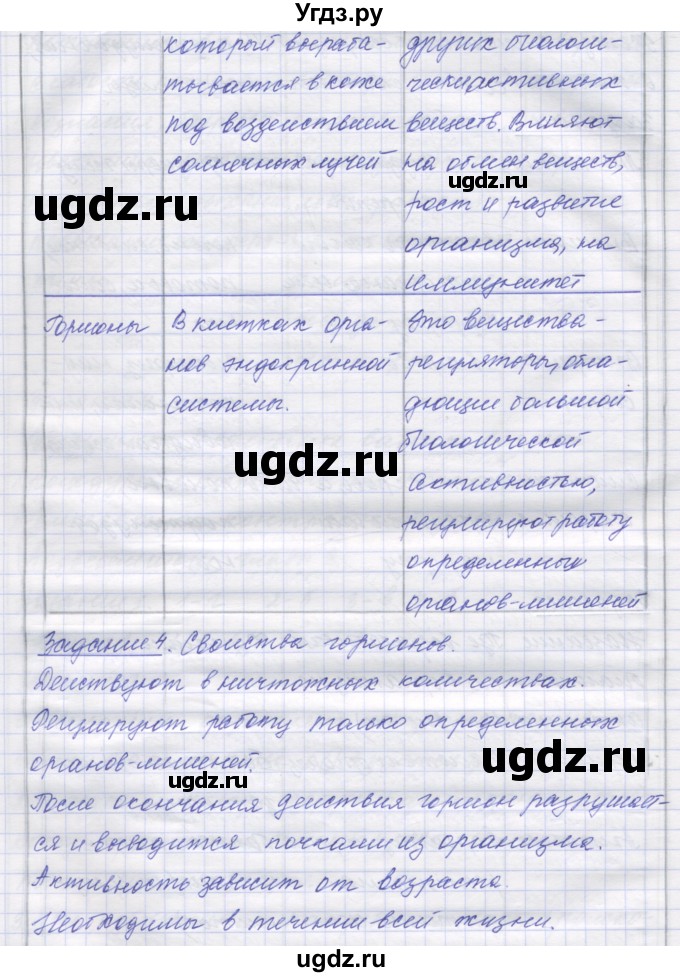 Угдз.ру
который вырабатывается в коже под воздействием солнечных лучей
других биологи-
ческиактивных
веществ. Влияют
на обмен веществ,
рост и развитие
организма, на
иммунитет
ugdz.ru
ugdz.ru
Гормоны
В клетках орга-
нов эндокринной
системы.
Это вещества-
регуляторы, обла-
дающие большой
биологической
активностью,
регулируют работу
определенных
органов-мишеней
ugdz.ru
Задание 4. Свойства гормонов.
Действуют в ничтожных количествах.
Регулируют работу только определенных
органов-мишеней.
ugdz.ru
ugdz.ru
После окончания действия гормон разрушает-
ся и выводится почками из организма.
Активность зависит от возраста.
Необходимы в течении всей жизни.
ugdz.ru